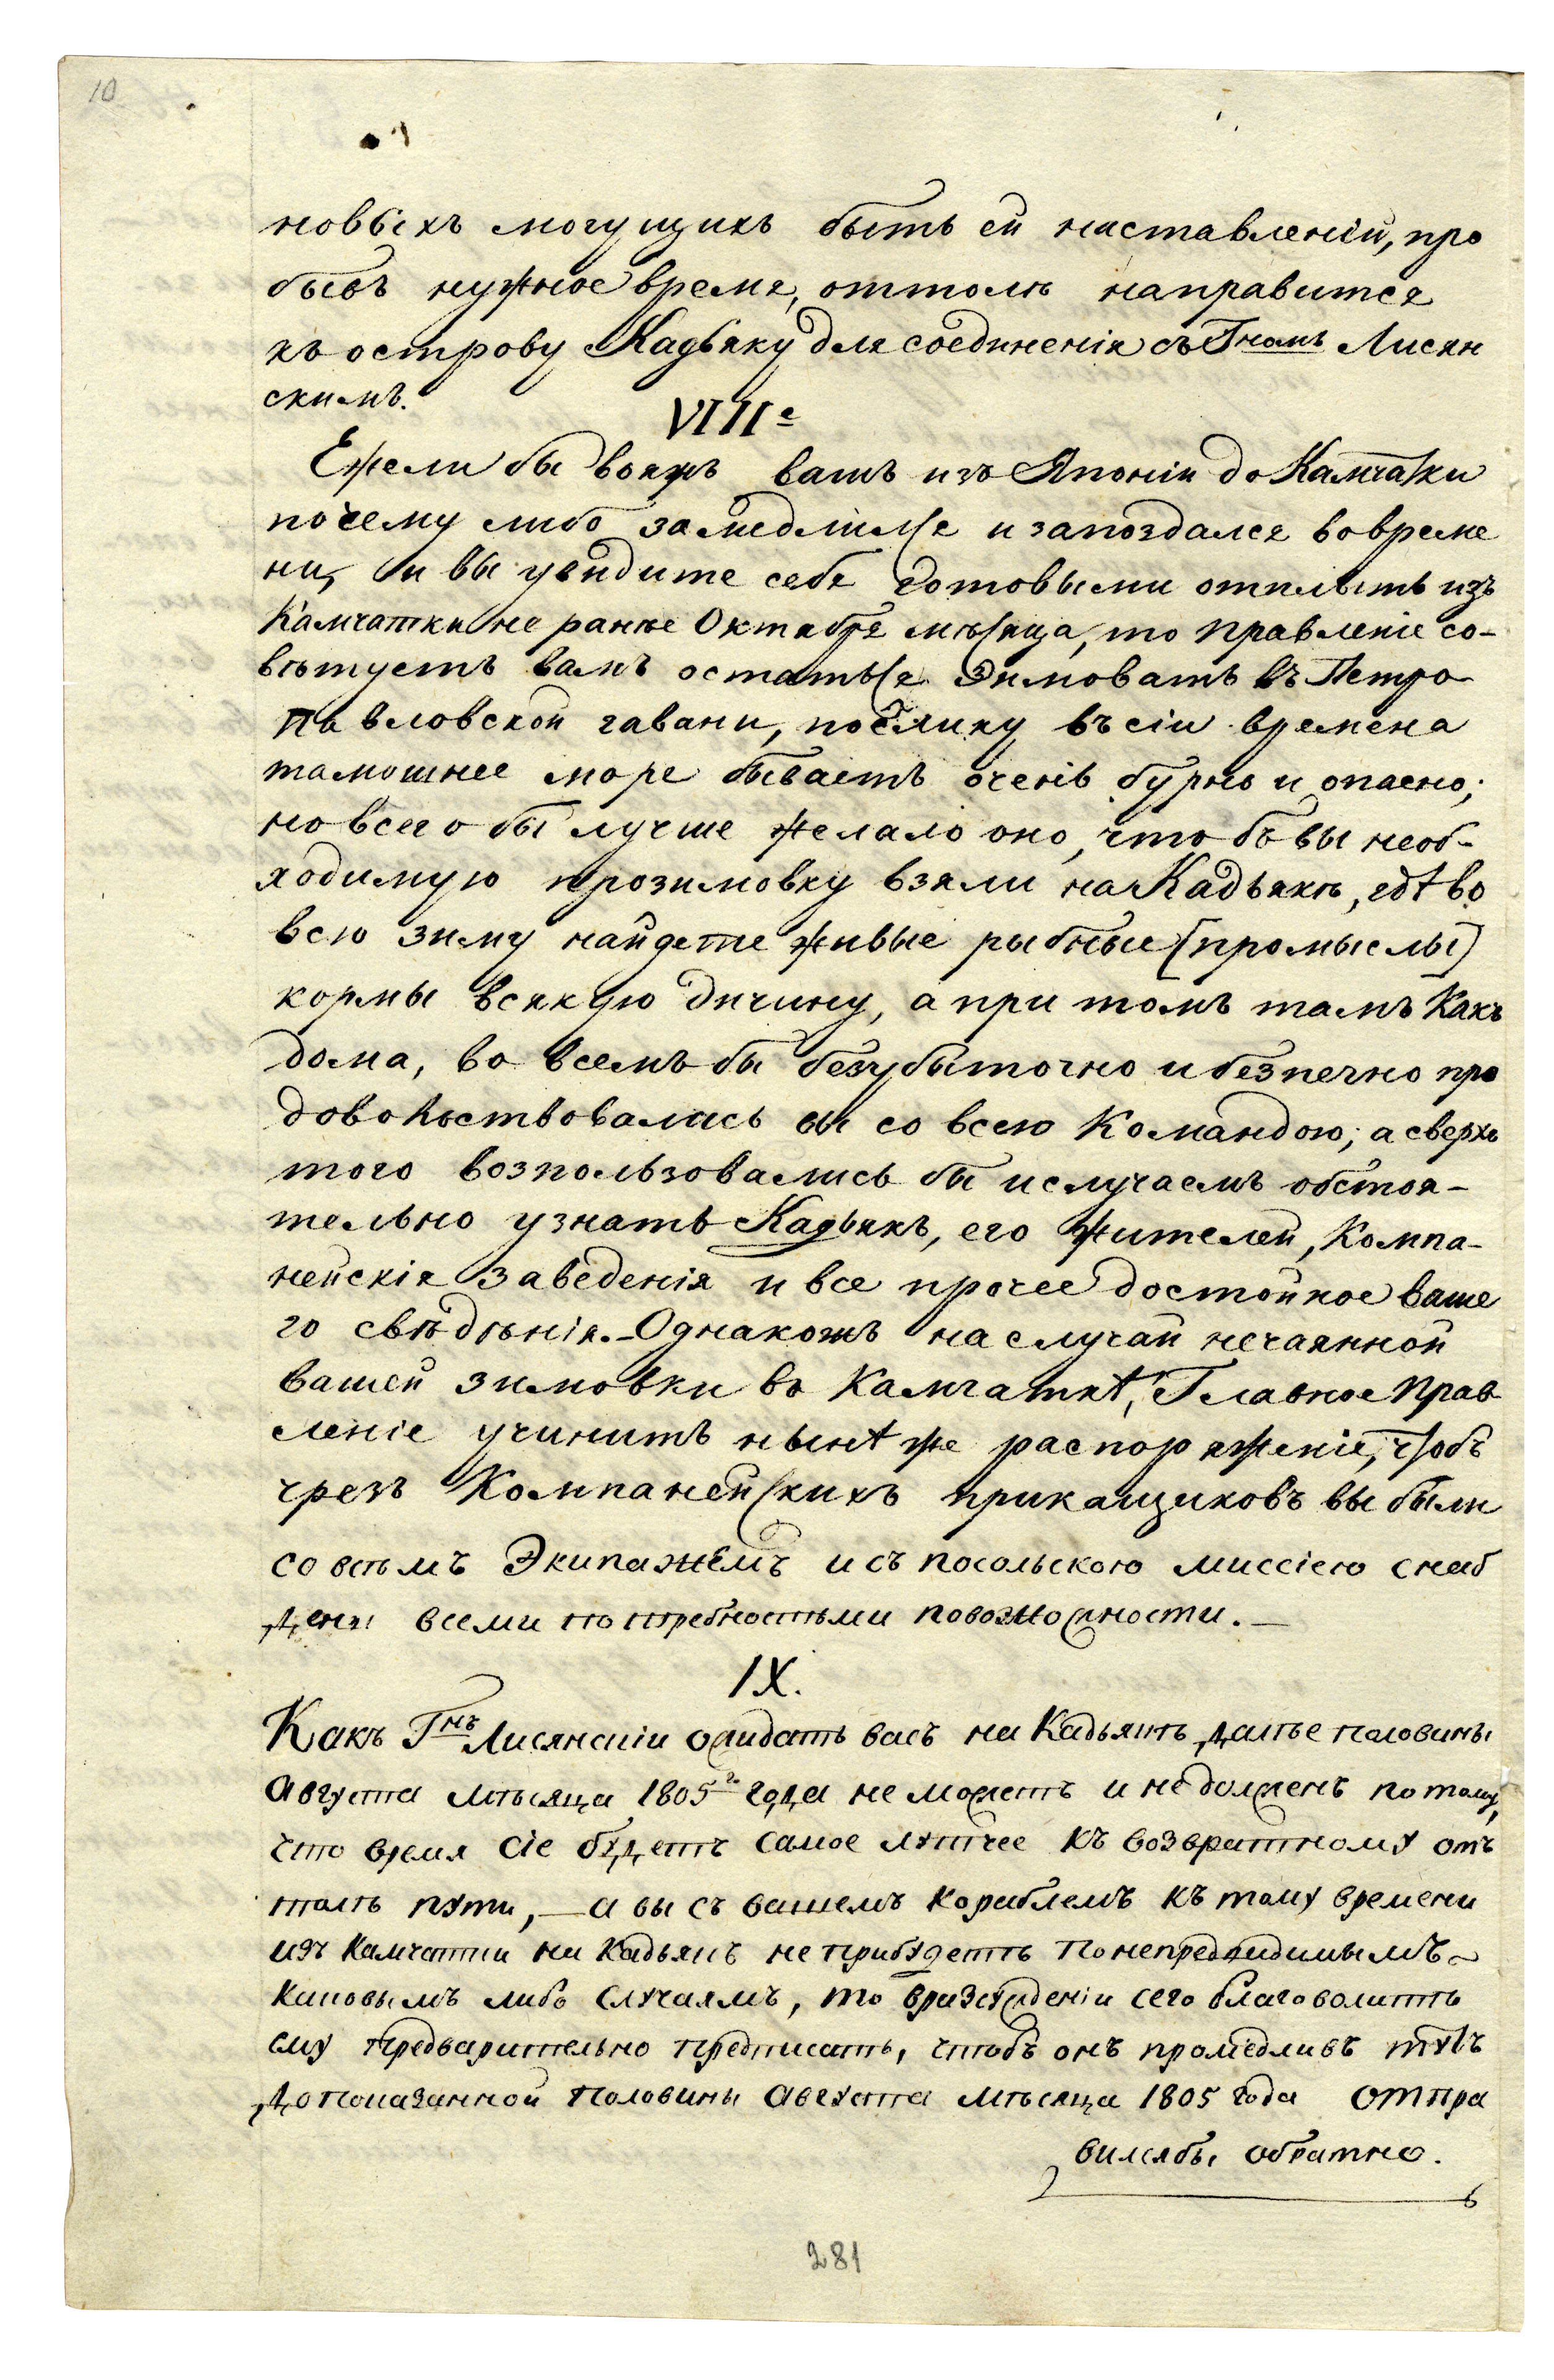 10
новыхъ могущихъ быть ей наставленій, про
бывъ нужное время, оттолѣ направится
къ острову Кадьяку для соединенія съ Гномъ Лисян
скимъ.
VIIIе
Ежели бы вояжъ вашъ изъ Японіи до Камчатки
почему либо замедлился и запоздался во време
ни, и вы увидите себя готовыми отплыть изъ
Камчатки не ранѣе Октября мѣсяца, то правленіе со-
вѣтуетъ вамъ остаться зимовать въ Петро
павловской гавани, поелику въ сіи времена
тамошнее море бываетъ очень бурно и опасно;
но всего бы лучше желало оно, что бъ вы необ-
ходимую прозимовку взяли на Кадьякѣ, гдѣ во
всю зиму найдете живые рыбные [промыслы]
кормы всякую дичину, а при томъ тамъ какъ
дома, во всемъ бы безубыточно и безпечно про
довольствовались вы со всею командою; а сверхъ
того возпользовались бы и случаемъ обстоя-
тельно узнать Кадьякъ, его жителей, Компа-
нейскія заведенія и все прочее достойное ваше
го свѣдѣнія. – Однакожъ на случай нечаянной
вашей зимовки въ Камчаткѣ, Главное Прав
леніе учинитъ нынѣ же распоряженіе, чтобъ
чрезъ Компанейскихъ прикащиковъ вы были
со всѣмъ Экипажемъ и съ посольскою миссіею снаб
дены всеми потребностьми по возможности. —
IX.
Какъ Гнъ Лисянскіи ожидать васъ на Кадьякѣ далѣе половины
Августа мѣсяца 1805го года не можетъ и не долженъ по тому,
что время сіе будетъ самое лутчее къ возвратному отъ
толѣ пути, — а вы съ вашемъ кораблемъ къ тому времени
изъ Камчатки на Кадьякъ не прибудете по непредвидимымъ
каковымъ либо случаямъ, то въ разсужденіи сего благоволите
ему предварительно предписать, чтобъ онъ промедливъ тутъ
до показанной половины Августа мѣсяца 1805 года отпра
вился бы обратно.
281